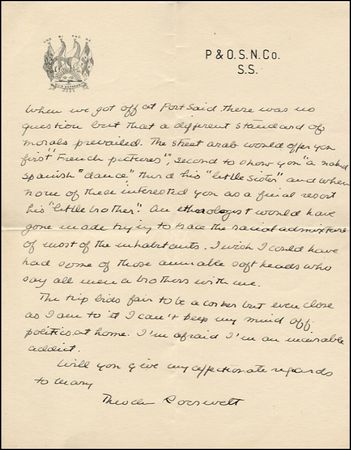 P & O. S. N. Co.
S.S.
When we got off at Port Said there was no
question but that a different standard of
morals prevailed. The street arab would offer you
first "French pictures", second to show you "a naked
Spanish "dance" third his "little sister" and when
none of these interested you as a final resort
his "little brother". An ethnologist would have
gone made trying to trace the racial admixture
of most of the inhabitants. I wish I could have
had some of those amiable soft heads who
say all men a brothers with me.
The trip bids fair to be a corker but even close
as I am to it I can't keep my mind off
politics at home. I'm afraid I'm an incurable
addict.
Will you give my affectionate regards
to Mary
Theodore Roosevelt